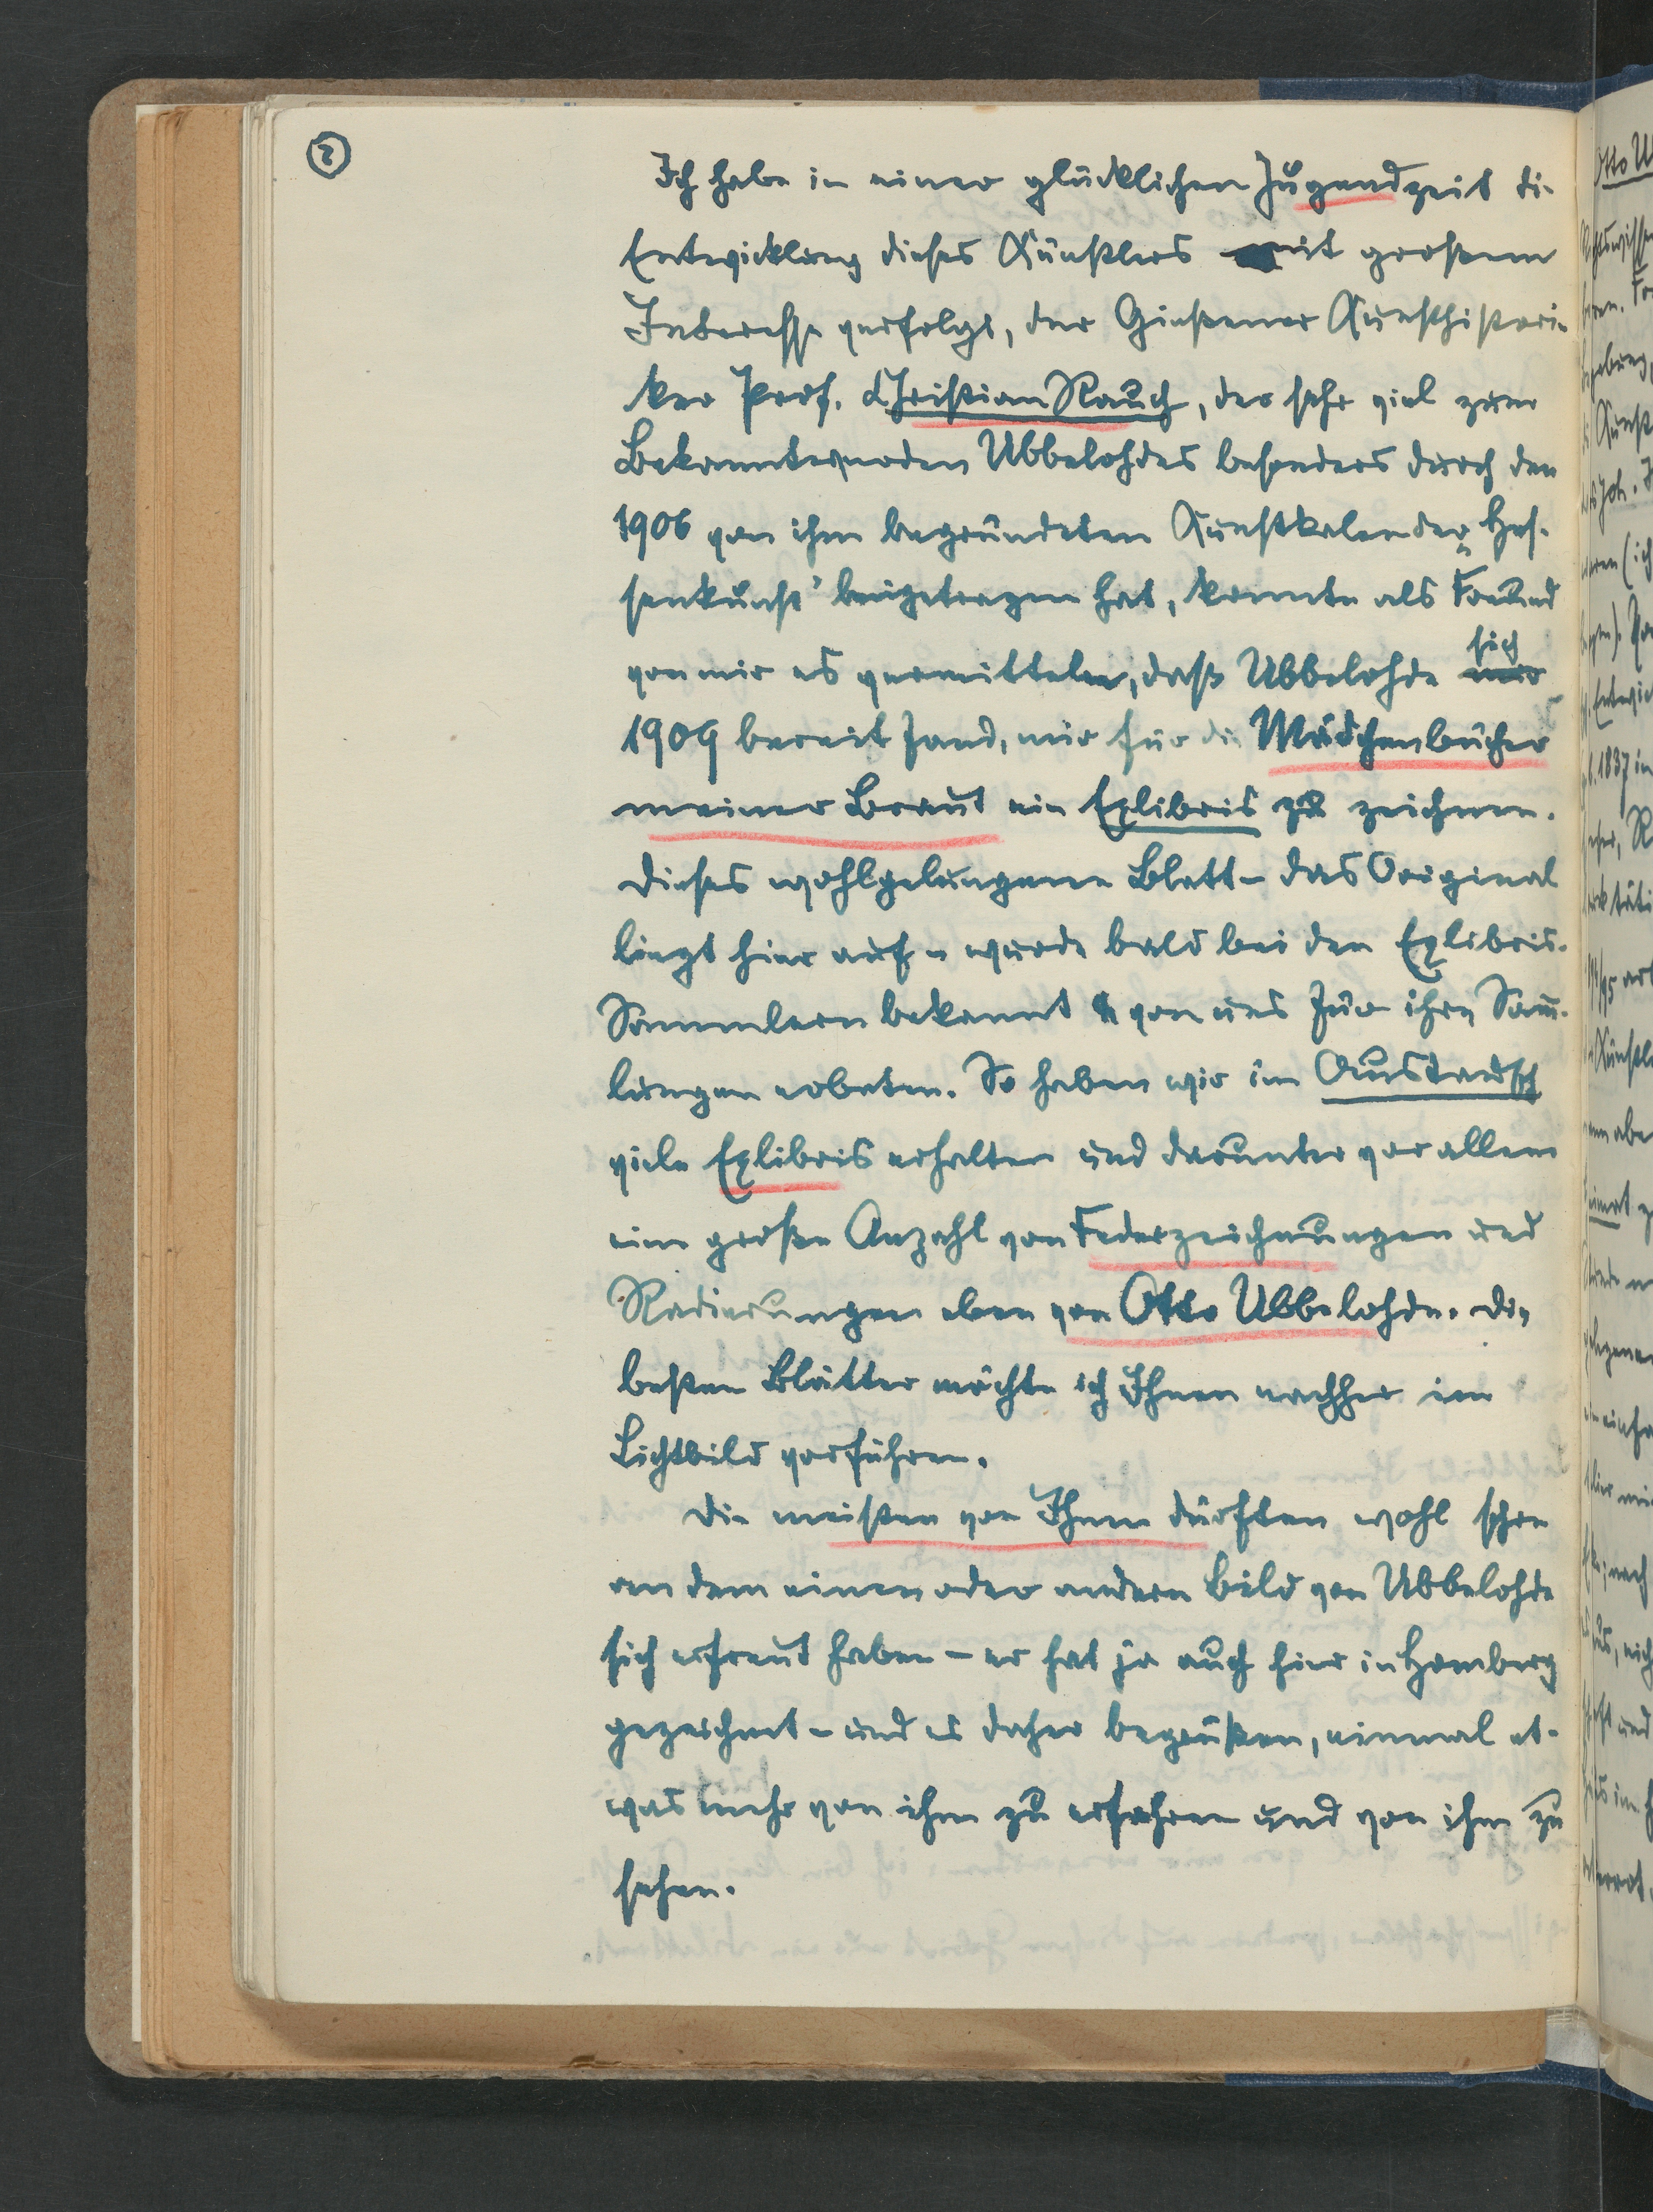 2
Ich habe in einer glücklichen Jugendzeit die
Entwicklung dieses Künstlers mit großem
Interesse verfolgt, der Gießener Kunsthistori-
ker Prof. Christian Rauch, der sehr viel zum
Bekanntwerden Ubbelohdes besonders durch den
1906 von ihm begründeten Kunstkalender „Hes-
senkunst" beigetragen hat, konnte als Freund
von mir es vermitteln, daß Ubbelohde sich
1909 bereit fand, mir für die Mädchenbücher
meiner Braut ein Exlibris zu zeichnen.
Dieses wohlgelungene Blatt – das Original
liegt hier auf – wurde bald bei den Exlibris-
Sammlern bekannt & von uns für ihre Samm-
lungen erbeten. So haben wir im Austausch
viele Exlibris erhalten und darunter vor allem
eine große Anzahl von Federzeichnungen und
Radierungen eben von Otto Ubbelohde. Die
besten Blätter möchte ich Ihnen nachher im
Lichtbild vorführen.
Die meisten von Ihnen dürften wohl schon
an dem einen oder andern Bild von Ubbelohde
sich erfreut haben – er hat ja auch hier in Homberg
gezeichnet – und es daher begrüßen, einmal et-
was mehr von ihm zu erfahren und von ihm zu
sehen.